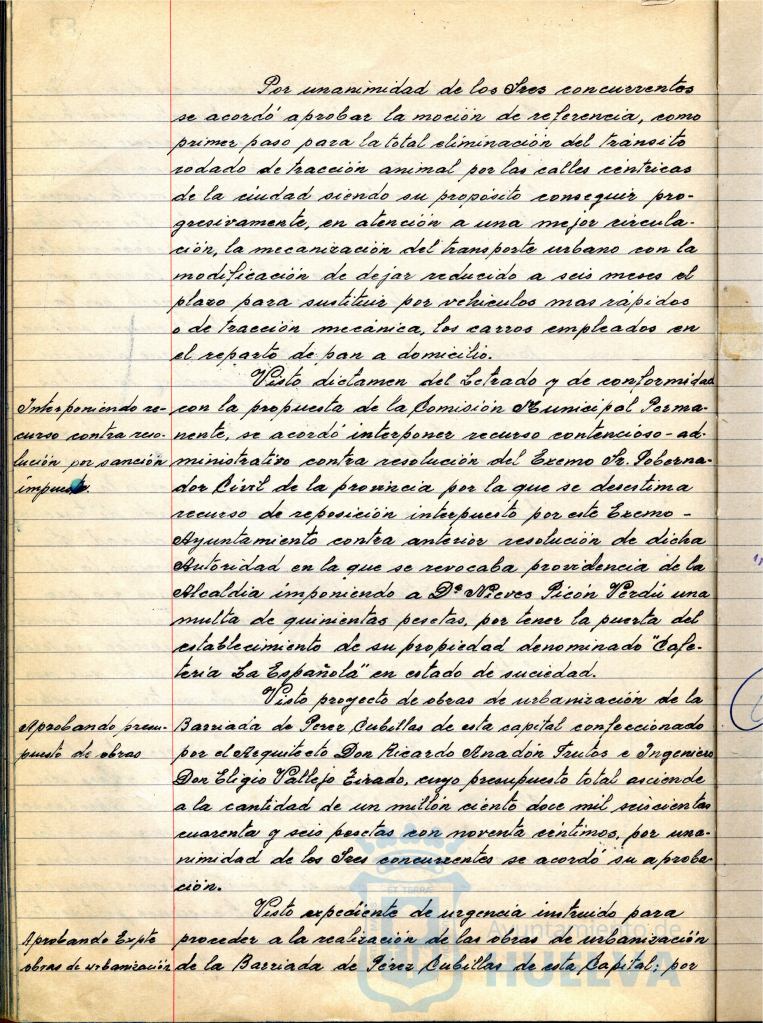 Por unanimidad de los Sres concurrentes
se acordó aprobar la moción de referencia, como
primer paso para la total eliminación del tránsito
rodado de tracción animal por las calles céntricas
de la ciudad siendo su propósito conseguir pro-
gresivamente, en atención a una mejor circula-
ción, la mecanización del transporte urbano con la
modificación de dejar reducido a seis meses el
plazo para sustituir por vehículos mas rápidos
o de tracción mecánica, los carros empleados en
el reparto de pan a domicilio.
Visto dictamen del Letrado y de conformidad
Interponiendo re-
curso contra reso-
lución por sanción
impuesta.
con la propuesta de la Comisión Municipal Perma-
nente, se acordó interponer recurso contencioso-ad-
ministrativo contra resolución del Excmo Sr. Goberna-
dor Civil de la provincia por la que se desestima
recurso de reposición interpuesto por este Excmo-
Ayuntamiento contra anterior resolución de dicha
Autoridad en la que se revocaba providencia de la
Alcaldia imponiendo a Dª Nieves Picón Verdú una
multa de quinientas pesetas, por tener la puerta del
establecimiento de su propiedad denominado "Cafe-
tería La Española" en estado de suciedad.
Visto proyecto de obras de urbanización de la
Aprobando presu-
puesto de obras
Barriada de Perez Cubillas de esta capital confeccionado
por el Arquitecto Don Ricardo Anadón Frutos e Ingeniero
Don Eligio Vallejo Eirado, cuyo presupuesto total asciende
a la cantidad de un millón ciento doce mil seiscientas
cuarenta y seis pesetas con noventa céntimos, por una-
nimidad de los Sres concurrentes se acordó su aproba-
ción.
Visto expediente de urgencia instruído para
Aprobando Expte
obras de urbanización
proceder a la realización de las obras de urbanización
de la Barriada de Pérez Cubillas de esta Capital; por
Ayuntamiento de
HUELVA